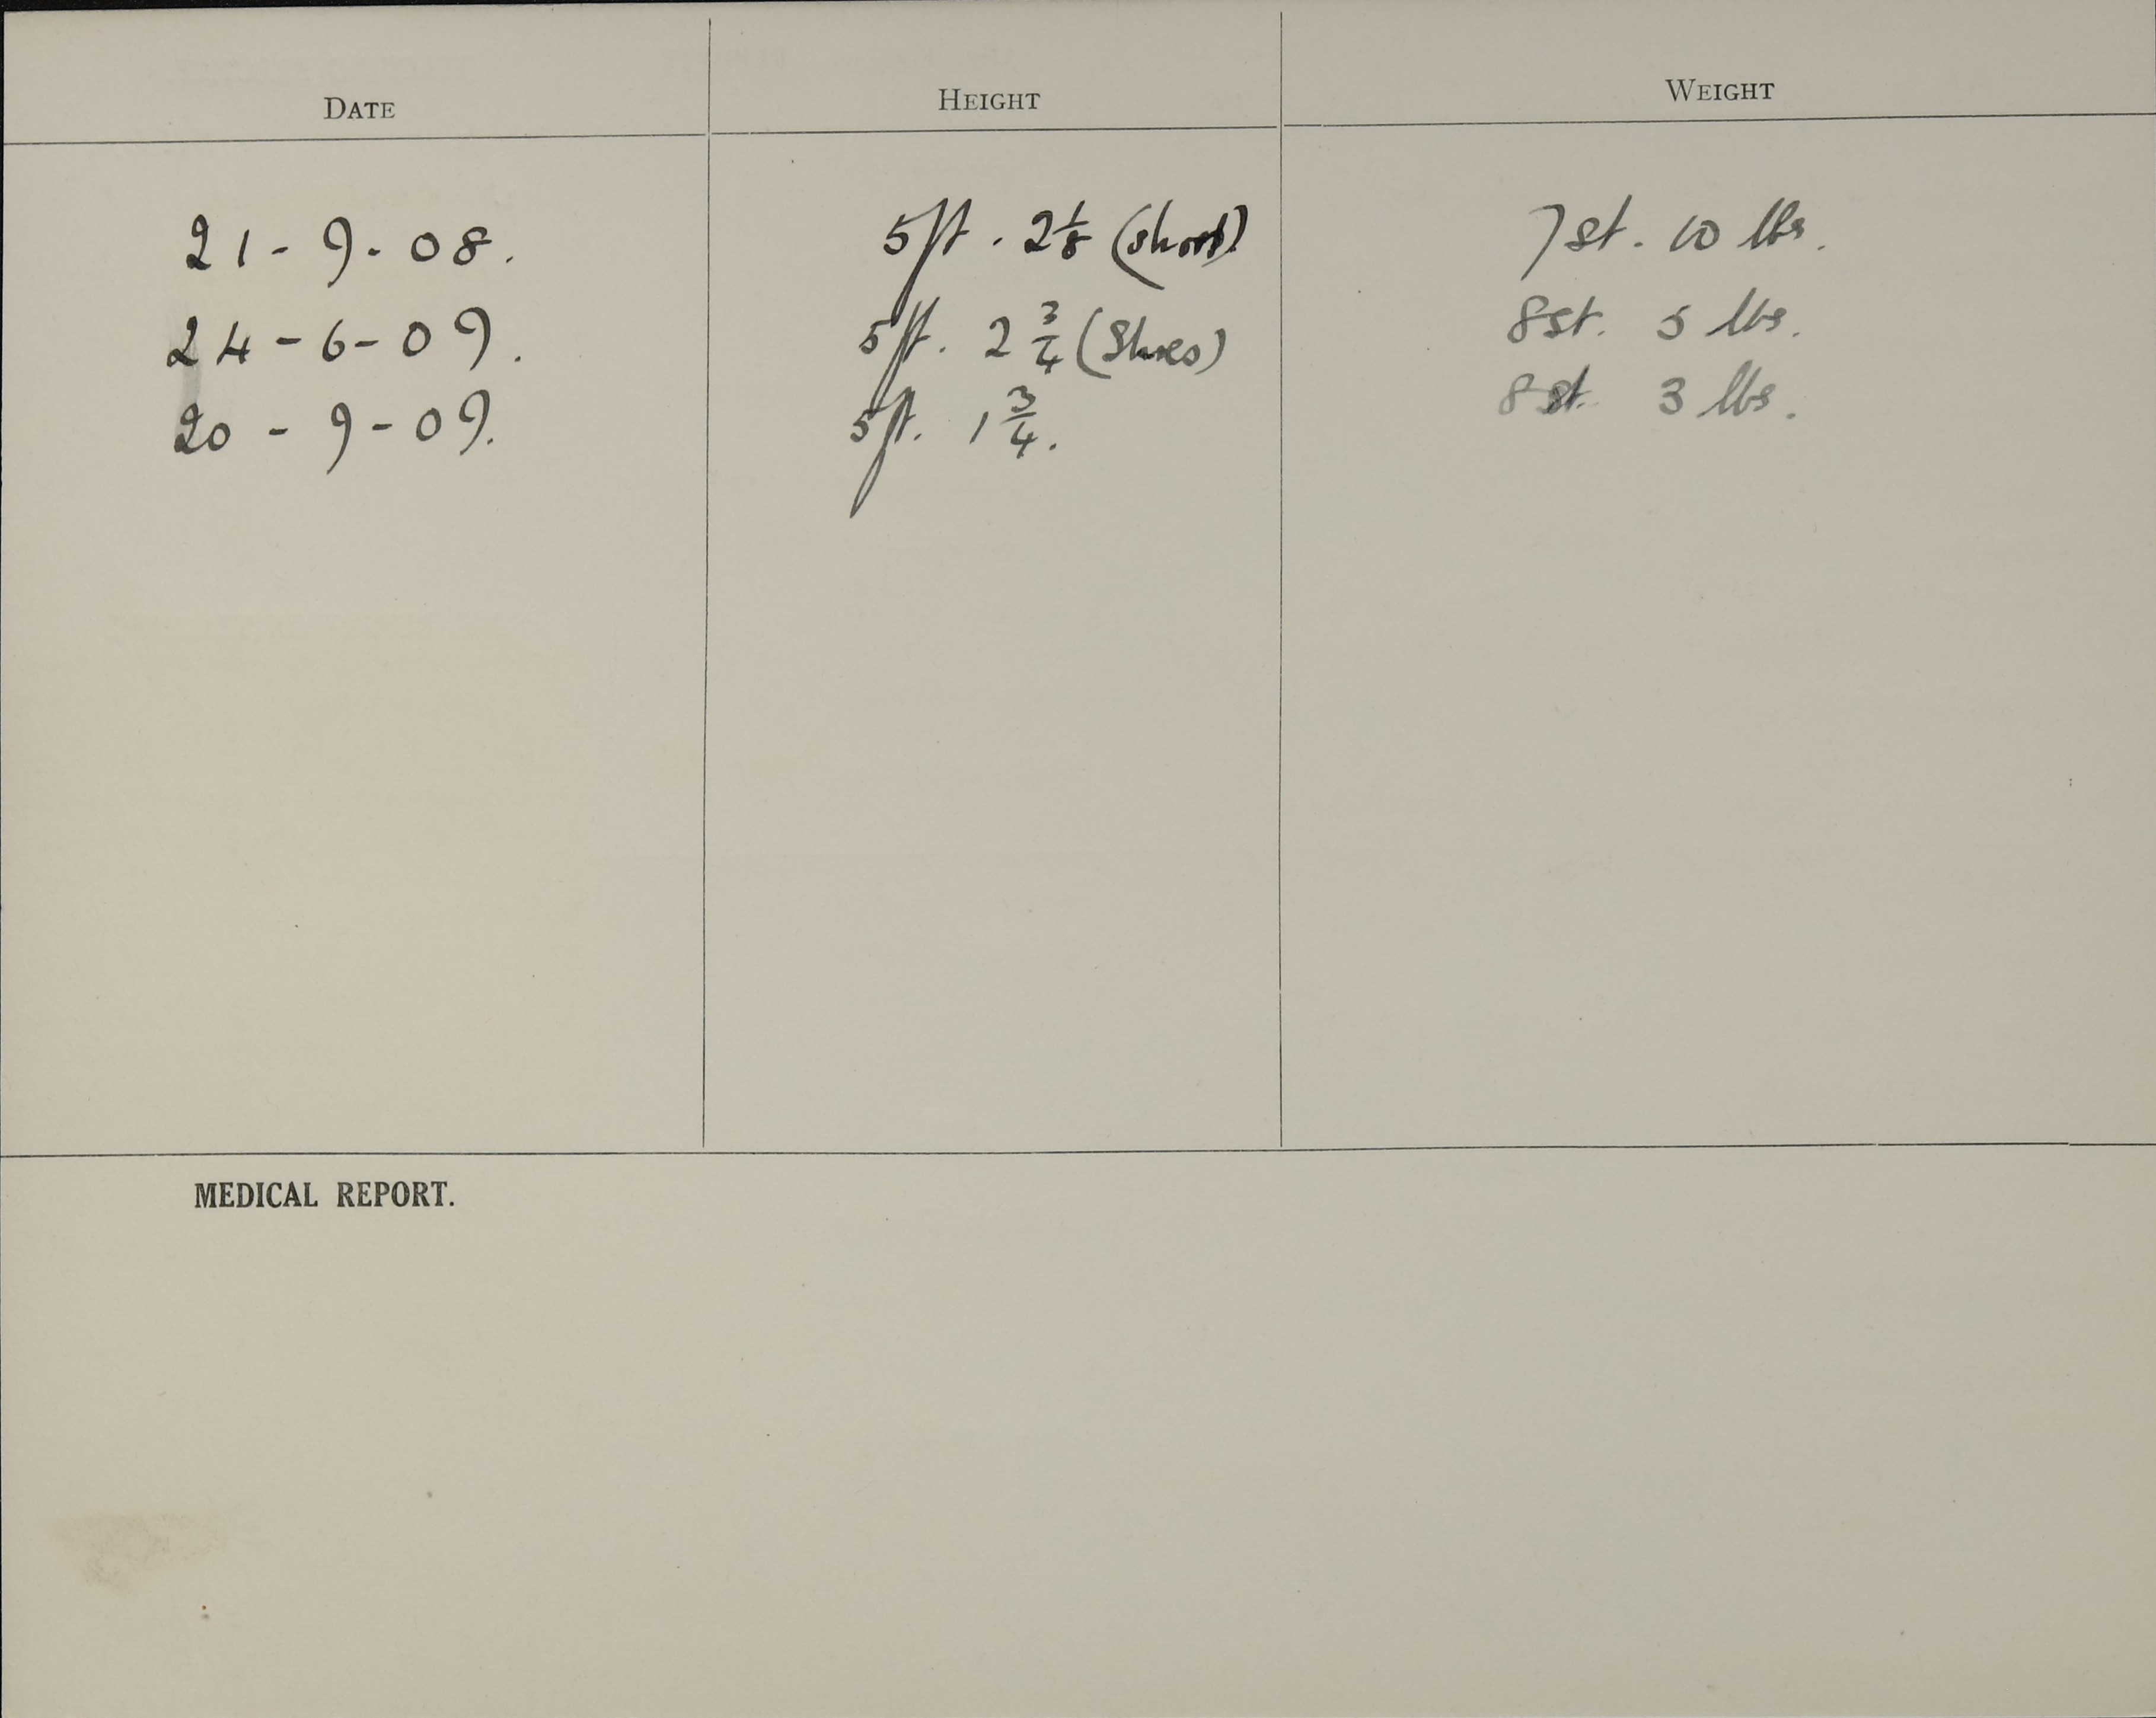 DATE HEIGHT WEIGHT
21 - 9 - 08. 5ft. 2 1/8 (shoes) 7 st. 10 lbs.
24 - 6 - 09. 5ft. 2 3/4 (Shoes) 8 st. 5 lbs.
20 - 9 - 09. 5ft. 1 3/4. 8 st. 3 lbs.
MEDICAL REPORT.